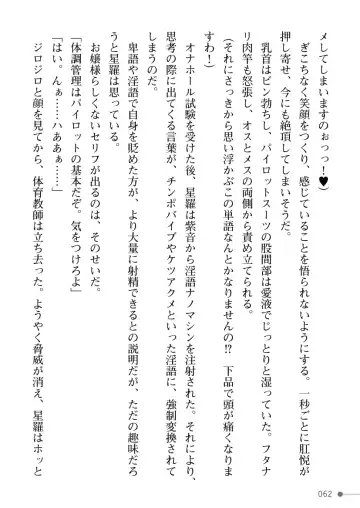 メしてしまいますのぉっっ！♥
　ぎこちなく笑顔をつくり、感じていることを悟られないようにする。一秒ごとに肛悦が
押し寄せ、今にも絶頂してしまいそうだ。
　乳首はビン勃ちし、パイロットスーツの股間部は愛液でじっとりと湿っていた。フタナ
リ肉竿も怒張し、オスとメスの両側から責め立てられる。
（それにさっきから思い浮かぶこの単語なんとかなりませんの!?　下品で頭が痛くなりま
すわ！）
　オナホール試験を受けた後、星羅は紫音から淫語ナノマシンを注射された。それにより、
思考の際に出てくる言葉が、チンポバイブやケツアクメといった淫語に、強制変換されて
しまうのだ。
　卑語や淫語で自身を貶めた方が、より大量に射精できるとの説明だが、ただの趣味だろ
うと星羅は思っている。
　お嬢様らしくないセリフが出るのは、そのせいだ。
「体調管理はパイロットの基本だぞ。気をつけろよ」
「はい。んぁ……ハあぁぁ……」
　ジロジロと顔を見てから、体育教師は立ち去った。ようやく脅威が消え、星羅はホッと
062